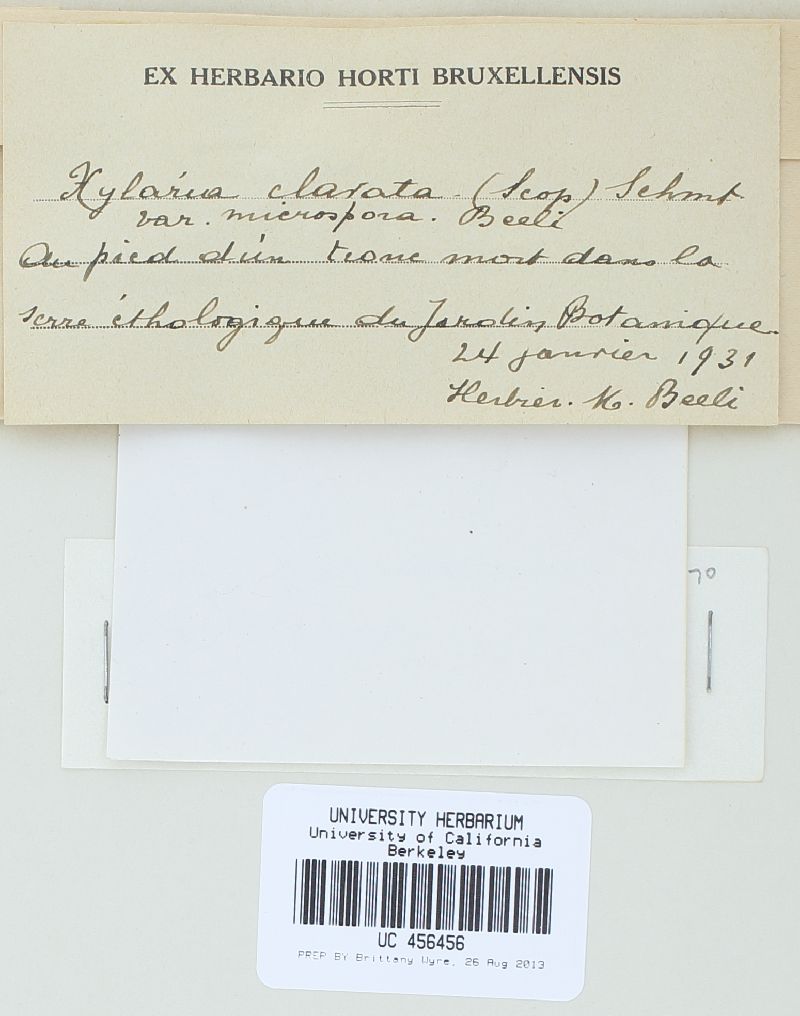 EX HERBARIO HORTI BRUXELLENSIS
Xylaria clavata (Scop) Schmt
var. microspora. Beeli
Au pied d'un tronc mort dans la
serre éthologique du Jardin Botanique.
24 janvier 1931
Herbier. M. Beeli
70
UNIVERSITY HERBARIUM
University of California
Berkeley
UC 456456
PREP BY Brittany Wyre, 26 Aug 2013